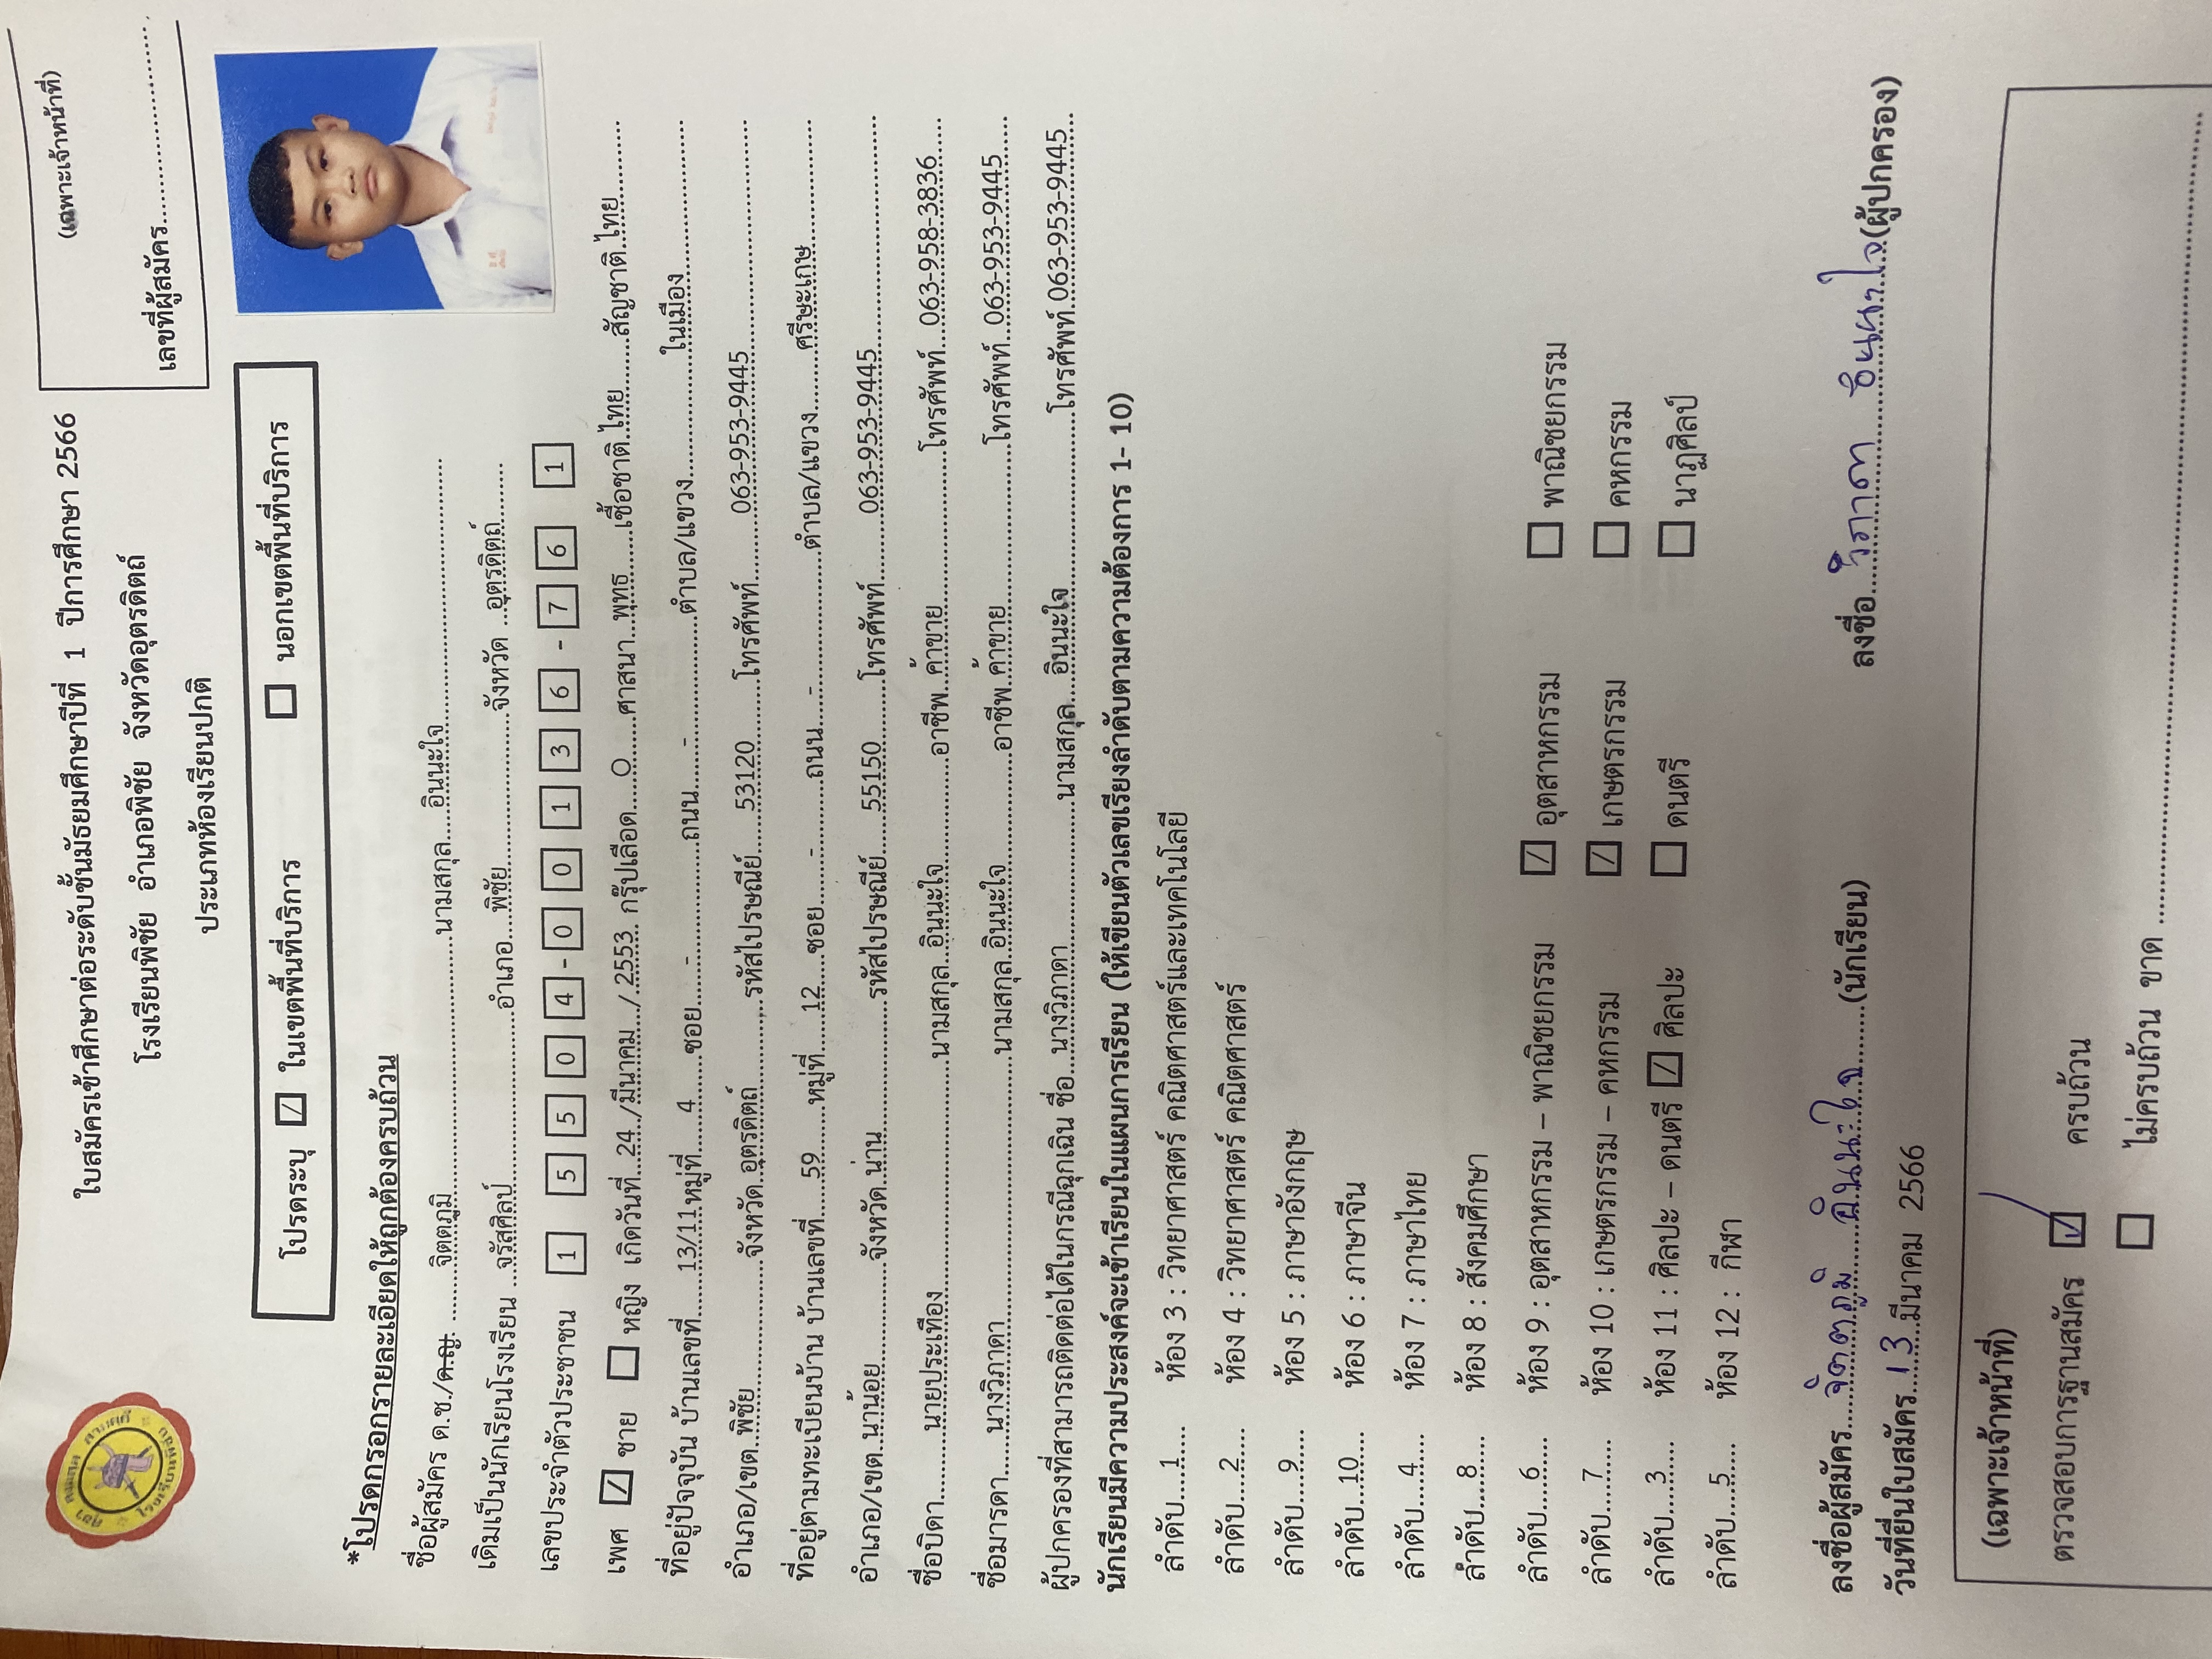 (เฉพาะเจ้าหน้าที่)
เลขที่ผู้สมัคร........................
ใบสมัครเข้าศึกษาต่อระดับชั้นมัธยมศึกษาปีที่ 1 ปีการศึกษา 2566
โรงเรียนพิชัย อำเภอพิชัย จังหวัดอุตรดิตถ์
ประเภทห้องเรียนปกติ
โปรดระบุ ☑ ในเขตพื้นที่บริการ ☐ นอกเขตพื้นที่บริการ
*โปรดกรอกรายละเอียดให้ถูกต้องครบถ้วน
ชื่อผู้สมัคร ด.ช./ด.ญ. ........จิตตภูมิ........นามสกุล.....อินนะใจ........
เดิมเป็นนักเรียนโรงเรียน ...จรัสศิลป์........อำเภอ....พิชัย........จังหวัด ...อุตรดิตถ์........
เลขประจำตัวประชาชน 1 5 5 0 4 - 0 0 1 3 6 - 7 6 1
เพศ ☑ ชาย ☐ หญิง เกิดวันที่...24.../มีนาคม.../.2553. กรุ๊ปเลือด....O......ศาสนา..พุทธ......เชื้อชาติ.ไทย......สัญชาติ.ไทย........
ที่อยู่ปัจจุบัน บ้านเลขที่......13/11หมู่ที่....4.....ซอย.......-........ถนน.....-........ตำบล/แขวง........ในเมือง........
อำเภอ/เขต..พิชัย........จังหวัด..อุตรดิตถ์........รหัสไปรษณีย์.....53120........โทรศัพท์........063-953-9445........
ที่อยู่ตามทะเบียนบ้าน บ้านเลขที่.....59......หมู่ที่.....12....ซอย.......-........ถนน....-........ตำบล/แขวง......ศรีษะเกษ........
อำเภอ/เขต..นาน้อย........จังหวัด..น่าน........รหัสไปรษณีย์.....55150........โทรศัพท์........063-953-9445........
ชื่อบิดา........นายประเทือง........นามสกุล..อินนะใจ........อาชีพ...ค้าขาย........โทรศัพท์...063-958-3836....
ชื่อมารดา......นางวิภาดา........นามสกุล..อินนะใจ........อาชีพ..ค้าขาย........โทรศัพท์...063-953-9445....
ผู้ปกครองที่สามารถติดต่อได้ในกรณีฉุกเฉิน ชื่อ....นางวิภาดา........นามสกุล....อินนะใจ........โทรศัพท์.063-953-9445...
นักเรียนมีความประสงค์จะเข้าเรียนในแผนการเรียน (ให้เขียนตัวเลขเรียงลำดับตามความต้องการ 1- 10)
ลำดับ.....1..... ห้อง 3 : วิทยาศาสตร์ คณิตศาสตร์และเทคโนโลยี
ลำดับ.....2..... ห้อง 4 : วิทยาศาสตร์ คณิตศาสตร์
ลำดับ.....9..... ห้อง 5 : ภาษาอังกฤษ
ลำดับ...10..... ห้อง 6 : ภาษาจีน
ลำดับ.....4..... ห้อง 7 : ภาษาไทย
ลำดับ.....8..... ห้อง 8 : สังคมศึกษา
ลำดับ.....6..... ห้อง 9 : อุตสาหกรรม – พาณิชยกรรม ☑ อุตสาหกรรม ☐ พาณิชยกรรม
ลำดับ.....7..... ห้อง 10 : เกษตรกรรม – คหกรรม ☑ เกษตรกรรม ☐ คหกรรม
ลำดับ.....3..... ห้อง 11 : ศิลปะ – ดนตรี ☑ ศิลปะ ☐ ดนตรี ☐ นาฏศิลป์
ลำดับ.....5..... ห้อง 12 : กีฬา
ลงชื่อผู้สมัคร....จิตตภูมิ....อินนะใจ........(นักเรียน) ลงชื่อ....วิภาดา อินนะใจ...(ผู้ปกครอง)
วันที่ยื่นใบสมัคร...13...มีนาคม 2566
(เฉพาะเจ้าหน้าที่)
ตรวจสอบการฐานสมัคร ☑ ครบถ้วน
☐ ไม่ครบถ้วน ขาด ........................